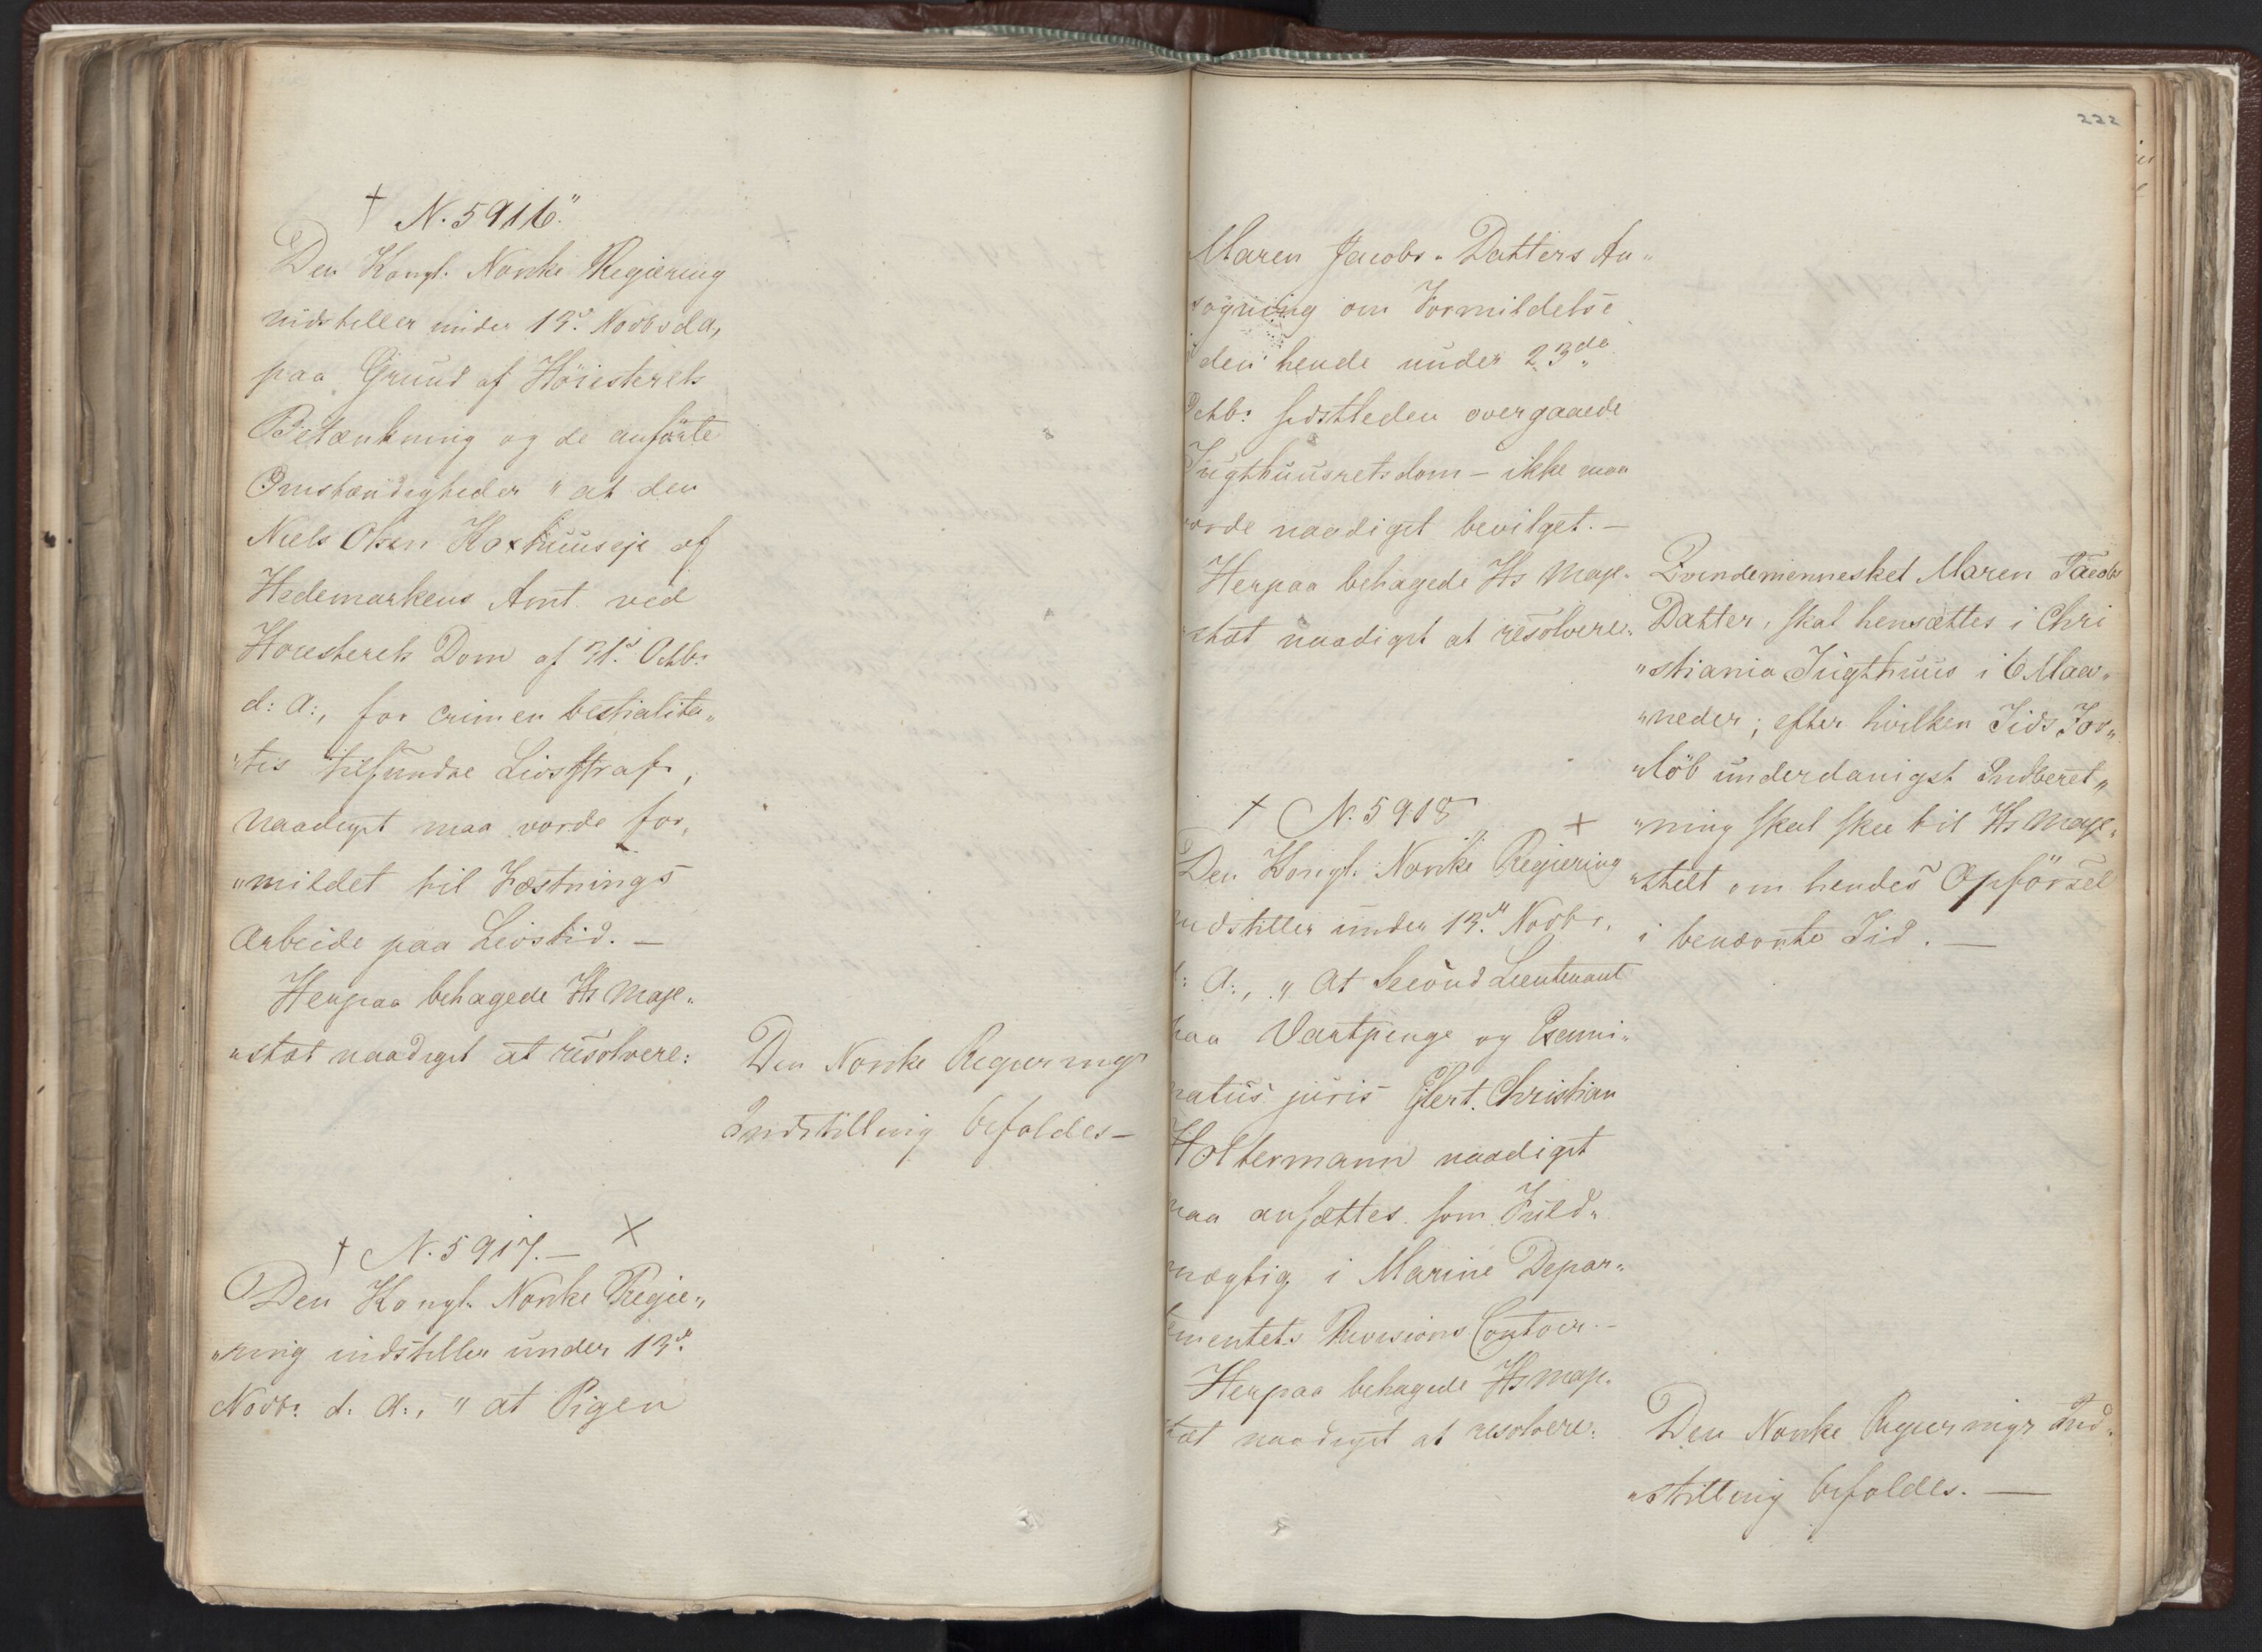 † N. 5916."
Den Kongl. Norske Regiering
indstiller under 13de Novbr d. A,
paa Grund af Höiesterets
Betænkning og de anförte
Omstændigheder " at den
Niels Olsen Korshuuseje af
Hedemarkens Amt ved
Hoiesterets Dom af 31te Octbr.
d: A:, for crimen bestialita„
„tis tilfundne Livsstraf,
naadigst maa vorde for„
„mildet til Fæstnings
Arbeide paa Livstid. —
Herpaa behagede Hs Maje„
„stæt naadigst at resolvere:
Den Norske Regierings
Indstilling bifaldes —
† N. 5917. — X
Den Kongl. Norske Regie„
„ring indstiller under 13de
Novbr. d. A:, " at Pigen
222
Maren Jacobs„Datters An„
søgning om Formildelse
i den hende under 23de
Octbr. sidstleden overgaaede
Tugthuusretsdom — ikke maa
vorde naadigst bevilget. —
Herpaa behagede Hs Maje„
stæt naadigst at resolvere:
Qvindemennesket Maren Jacobs
Datter, skal hensættes i Chri
„stiania Tugthuus i 6 Maa„
„neder; efter hvilken Tids For„
„löb underdanigst Indberet„
„ning skal skee til Hs Maje„
„stelt om hendes Opförsel
i benævnte Tid. —
† N. 5918 X
Den Kongl. Norske Regiering
indstiller under 13de Novbr.
d: A:, " At Second Lieutenant
paa Vartpenge og Exami„
natus juris Eilert Christian
Holtermann naadigst
maa ansættes som Fuld„
mægtig i Marine Depar„
tementets Revisions Contoir. —
Herpaa behagede Hs Maje.
stæt naadigst at resolvere:
Den Norske Regierings Ind„
„stilling bifaldes. —